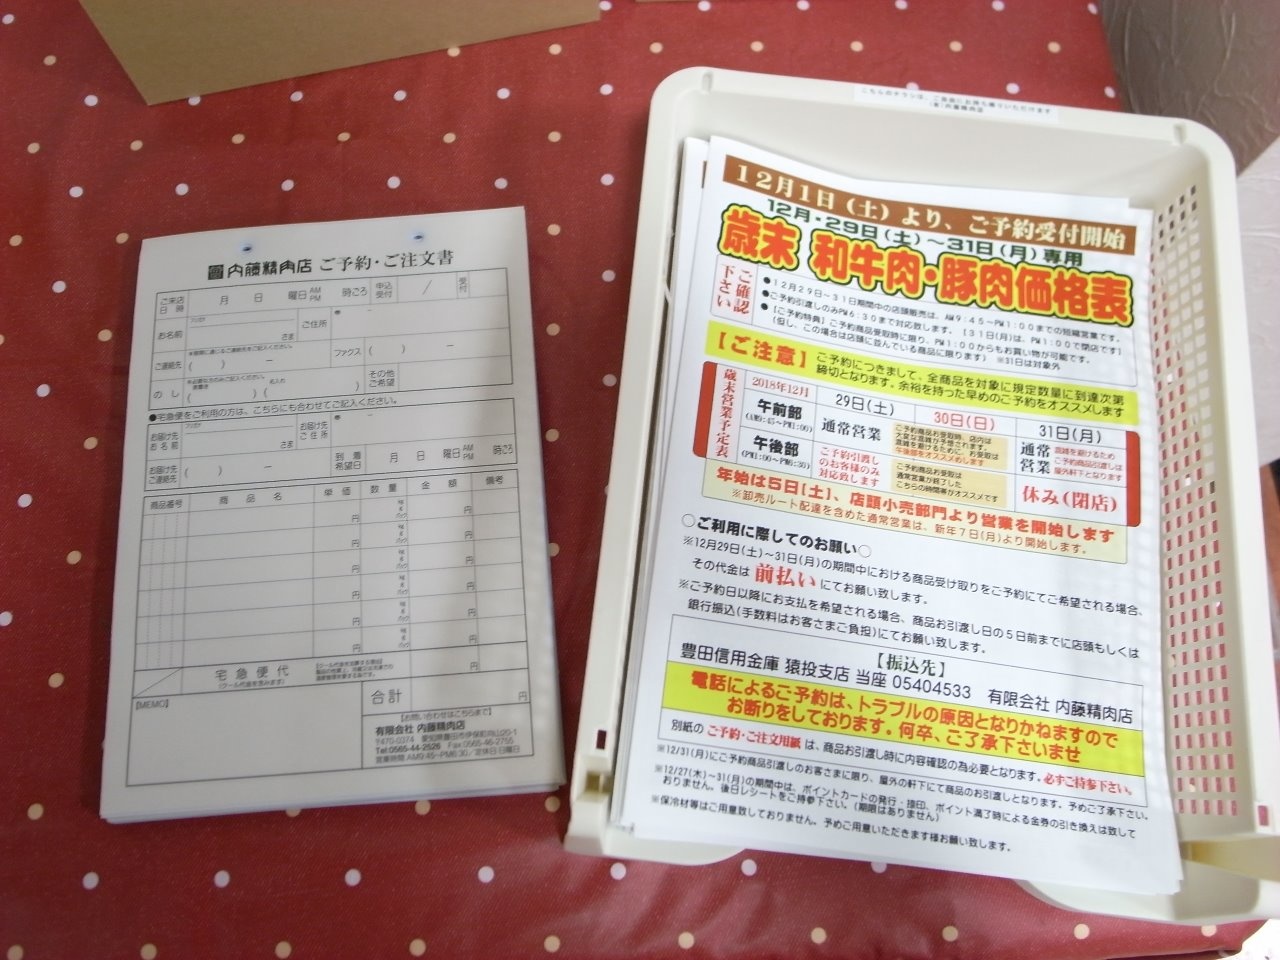 内藤精肉店 ご予約・ご注文書
ご来店日時 月 日 曜日 AM PM 時ごろ 申込受付 / 受付
お名前 フリガナ さま ご住所
ご連絡先 ( ) − ファックス ( ) −
のし ( ) ( ) その他ご希望
●宅急便をご利用の方は、こちらにも合わせてご記入ください。
お届け先お名前 フリガナ さま お届け先ご住所
お届け先ご連絡先 ( ) − 到着希望日 月 日 曜日 AM PM 時ごろ
商品番号 商品名 単価 数量 金額 備考
円 円
円 円
円 円
円 円
円 円
宅急便代 円
(クール代金を含みます)
合計 円
【MEMO】
【お問い合わせはこちらまで】
有限会社 内藤精肉店
〒470-0374 愛知県豊田市伊保町向山20-1
Tel:0565-44-2526 Fax:0565-46-2755
営業時間 AM9:45~PM6:30/定休日 日曜日
こちらのチラシは、ご自由にお持ち帰りいただけます
(有)内藤精肉店
12月1日(土)より、ご予約受付開始
12月・29日(土)~31日(月)専用
歳末 和牛肉・豚肉価格表
ご確認下さい
●12月29日~31日期間中の店頭販売は、AM9:45~PM1:00までの短縮営業です。
●ご予約引渡しのみPM6:30まで対応致します。【31日(月)は、PM1:00で閉店です】
●【ご予約特典】ご予約商品受取時に限り、PM1:00からもお買い物が可能です。
(但し、この場合は店頭に並んでいる商品に限ります) ※31日は対象外
【ご注意】ご予約につきまして、全商品を対象に規定数量に到達次第
締切となります。余裕を持った早めのご予約をオススメします
歳末営業予定表
2018年12月 29日(土) 30日(日) 31日(月)
午前部 (AM9:45~PM1:00) 通常営業
ご予約商品お受取時、店内は
大変な混雑が予想されます。
混雑を避けるために、お受取は
午後部をオススメします
通常営業 混雑を避けるため
ご予約商品引渡しは
屋外軒下となります
午後部 (PM1:00~PM6:30) ご予約引渡し
のお客様のみ
対応致します
ご予約商品お受取は
通常営業が終了した
こちらの時間帯がオススメです
休み(閉店)
年始は5日(土)、店頭小売部門より営業を開始します
※卸売ルート配達を含めた通常営業は、新年7日(月)より開始します。
○ご利用に際してのお願い○
※12月29日(土)~31日(月)の期間中における商品受け取りをご予約にてご希望される場合、
その代金は 前払い にてお願い致します。
※ご予約日以降にお支払を希望される場合、商品お引渡し日の5日前までに店頭もしくは
銀行振込(手数料はお客さまご負担)にてお願い致します。
【振込先】
豊田信用金庫 猿投支店 当座 05404533 有限会社 内藤精肉店
電話によるご予約は、トラブルの原因となりかねますので
お断りをしております。何卒、ご了承下さいませ
別紙の ご予約・ご注文用紙 は、商品お引渡し時に内容確認の為必要となります。必ずご持参下さい。
※12/31(月)にご予約商品引渡しのお客さまに限り、屋外の軒下にて商品のお引渡しとなります。予めご了承下さい。
※12/27(木)~31(月)の期間中は、ポイントカードの発行・捺印、ポイント満了時による金券の引き換えは致して
おりません。後日レシートをご持参下さい。(期限はありません)
※保冷材等はご用意致しておりません。予めご用意いただきます様お願い致します。